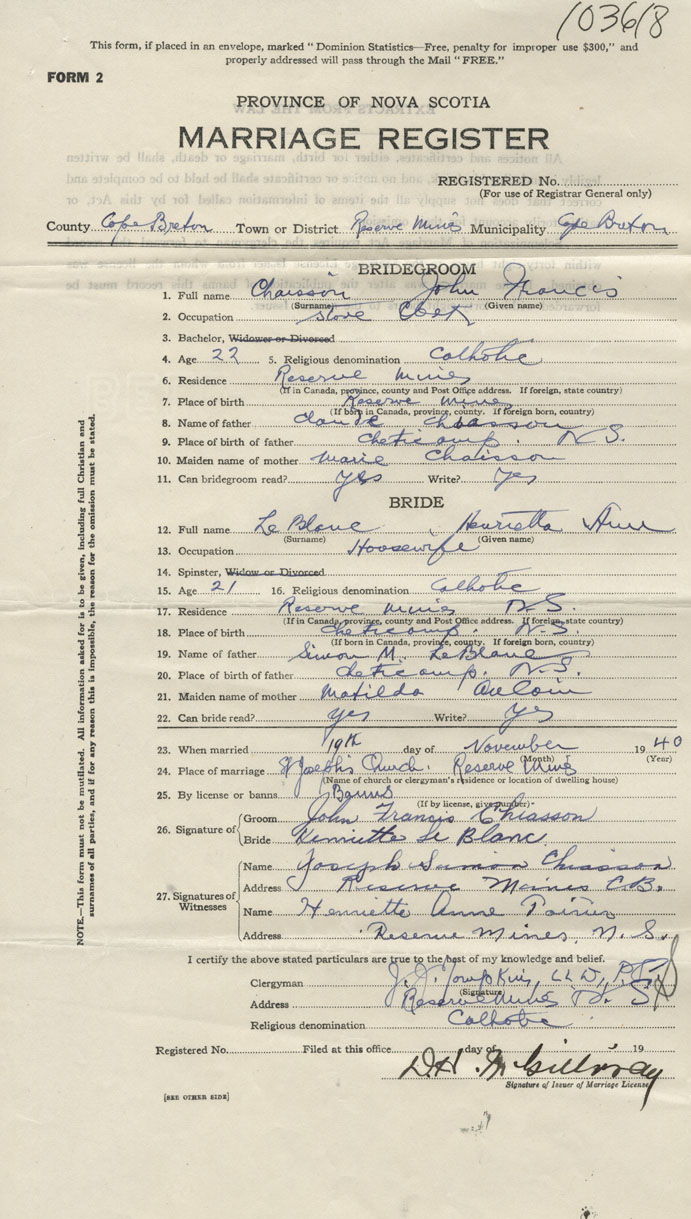 103618
This form, if placed in an envelope, marked "Dominion Statistics—Free, penalty for improper use $300," and
properly addressed will pass through the Mail "FREE."
FORM 2
PROVINCE OF NOVA SCOTIA
MARRIAGE REGISTER
REGISTERED No.
(For use of Registrar General only)
County Cape Breton Town or District Reserve Mines Municipality Cape Breton
BRIDEGROOM
1. Full name Chaisson John Francis
(Surname) (Given name)
2. Occupation Store Clerk
3. Bachelor, Widower or Divorced
4. Age 22 5. Religious denomination Catholic
6. Residence Reserve Mines
(If in Canada, province, county and Post Office address. If foreign, state country)
7. Place of birth Reserve Mines
(If born in Canada, province, county. If foreign born, country)
8. Name of father Claude Chiasson
9. Place of birth of father Cheticamp. N S.
10. Maiden name of mother Marie Chaisson
11. Can bridegroom read? Yes Write? Yes
BRIDE
12. Full name Le Blanc, Henrietta Ann
(Surname) (Given name)
13. Occupation Housewife
14. Spinster, Widow or Divorced
15. Age 21 16. Religious denomination Catholic
17. Residence Reserve Mines N S.
(If in Canada, province, county and Post Office address. If foreign, state country)
18. Place of birth Cheticamp. N. S.
(If born in Canada, province, county. If foreign born, country)
19. Name of father Simon M. LeBlanc
20. Place of birth of father Cheticamp. N. S.
21. Maiden name of mother Matilda AuCoin
22. Can bride read? Yes Write? Yes
23. When married 19th day of November 1940
(Month) (Year)
24. Place of marriage St Joseph's Church. Reserve Mines
(Name of church or clergyman's residence or location of dwelling house)
25. By license or banns Banns
(If by license, give number)
26. Signature of Groom John Francis Chiasson
Bride Henriette Le Blanc
27. Signatures of Witnesses
Name Joseph Simon Chiasson
Address Reserve Mines C.B.
Name Henriette Anne Poirier
Address Reserve Mines, N. S.
I certify the above stated particulars are true to the best of my knowledge and belief.
Clergyman J. J. Tompkins, LL D, P.P.
(Signature)
Address Reserve Mines N. S
Religious denomination Catholic
Registered No. Filed at this office day of 19
D H. McGillivray
Signature of Issuer of Marriage License
[SEE OTHER SIDE]
NOTE.—This form must not be mutilated. All information asked for is to be given, including full Christian and
surnames of all parties, and if for any reason this is impossible, the reason for the omission must be stated.